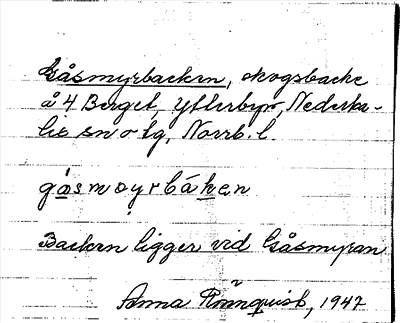 Gåsmyrbacken, skogsbacke
å 4 Berget, Ytterbyn, Nederka-
lix sn o tg, Norrb. l.
gåsmoyrbáken
Backen ligger vid Gåsmyran
Anna Rönnquist, 1947